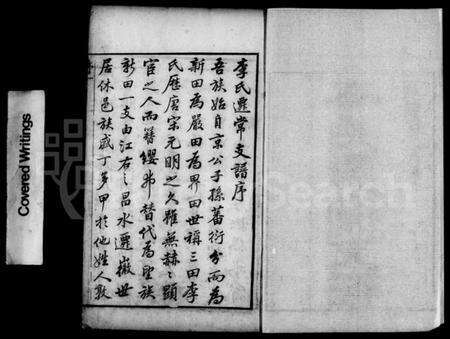 李氏遷常支譜序
吾族始自京公子孫蕃衍分而為
新田為嚴田為界田世稱三田李
氏歷唐宋元明之久雖無赫〻顯
宦之人而簪纓弗替代為望族
新田一支由江右之昌水遷徽世
居休邑族盛丁多甲於他姓人敦
Covered Writings